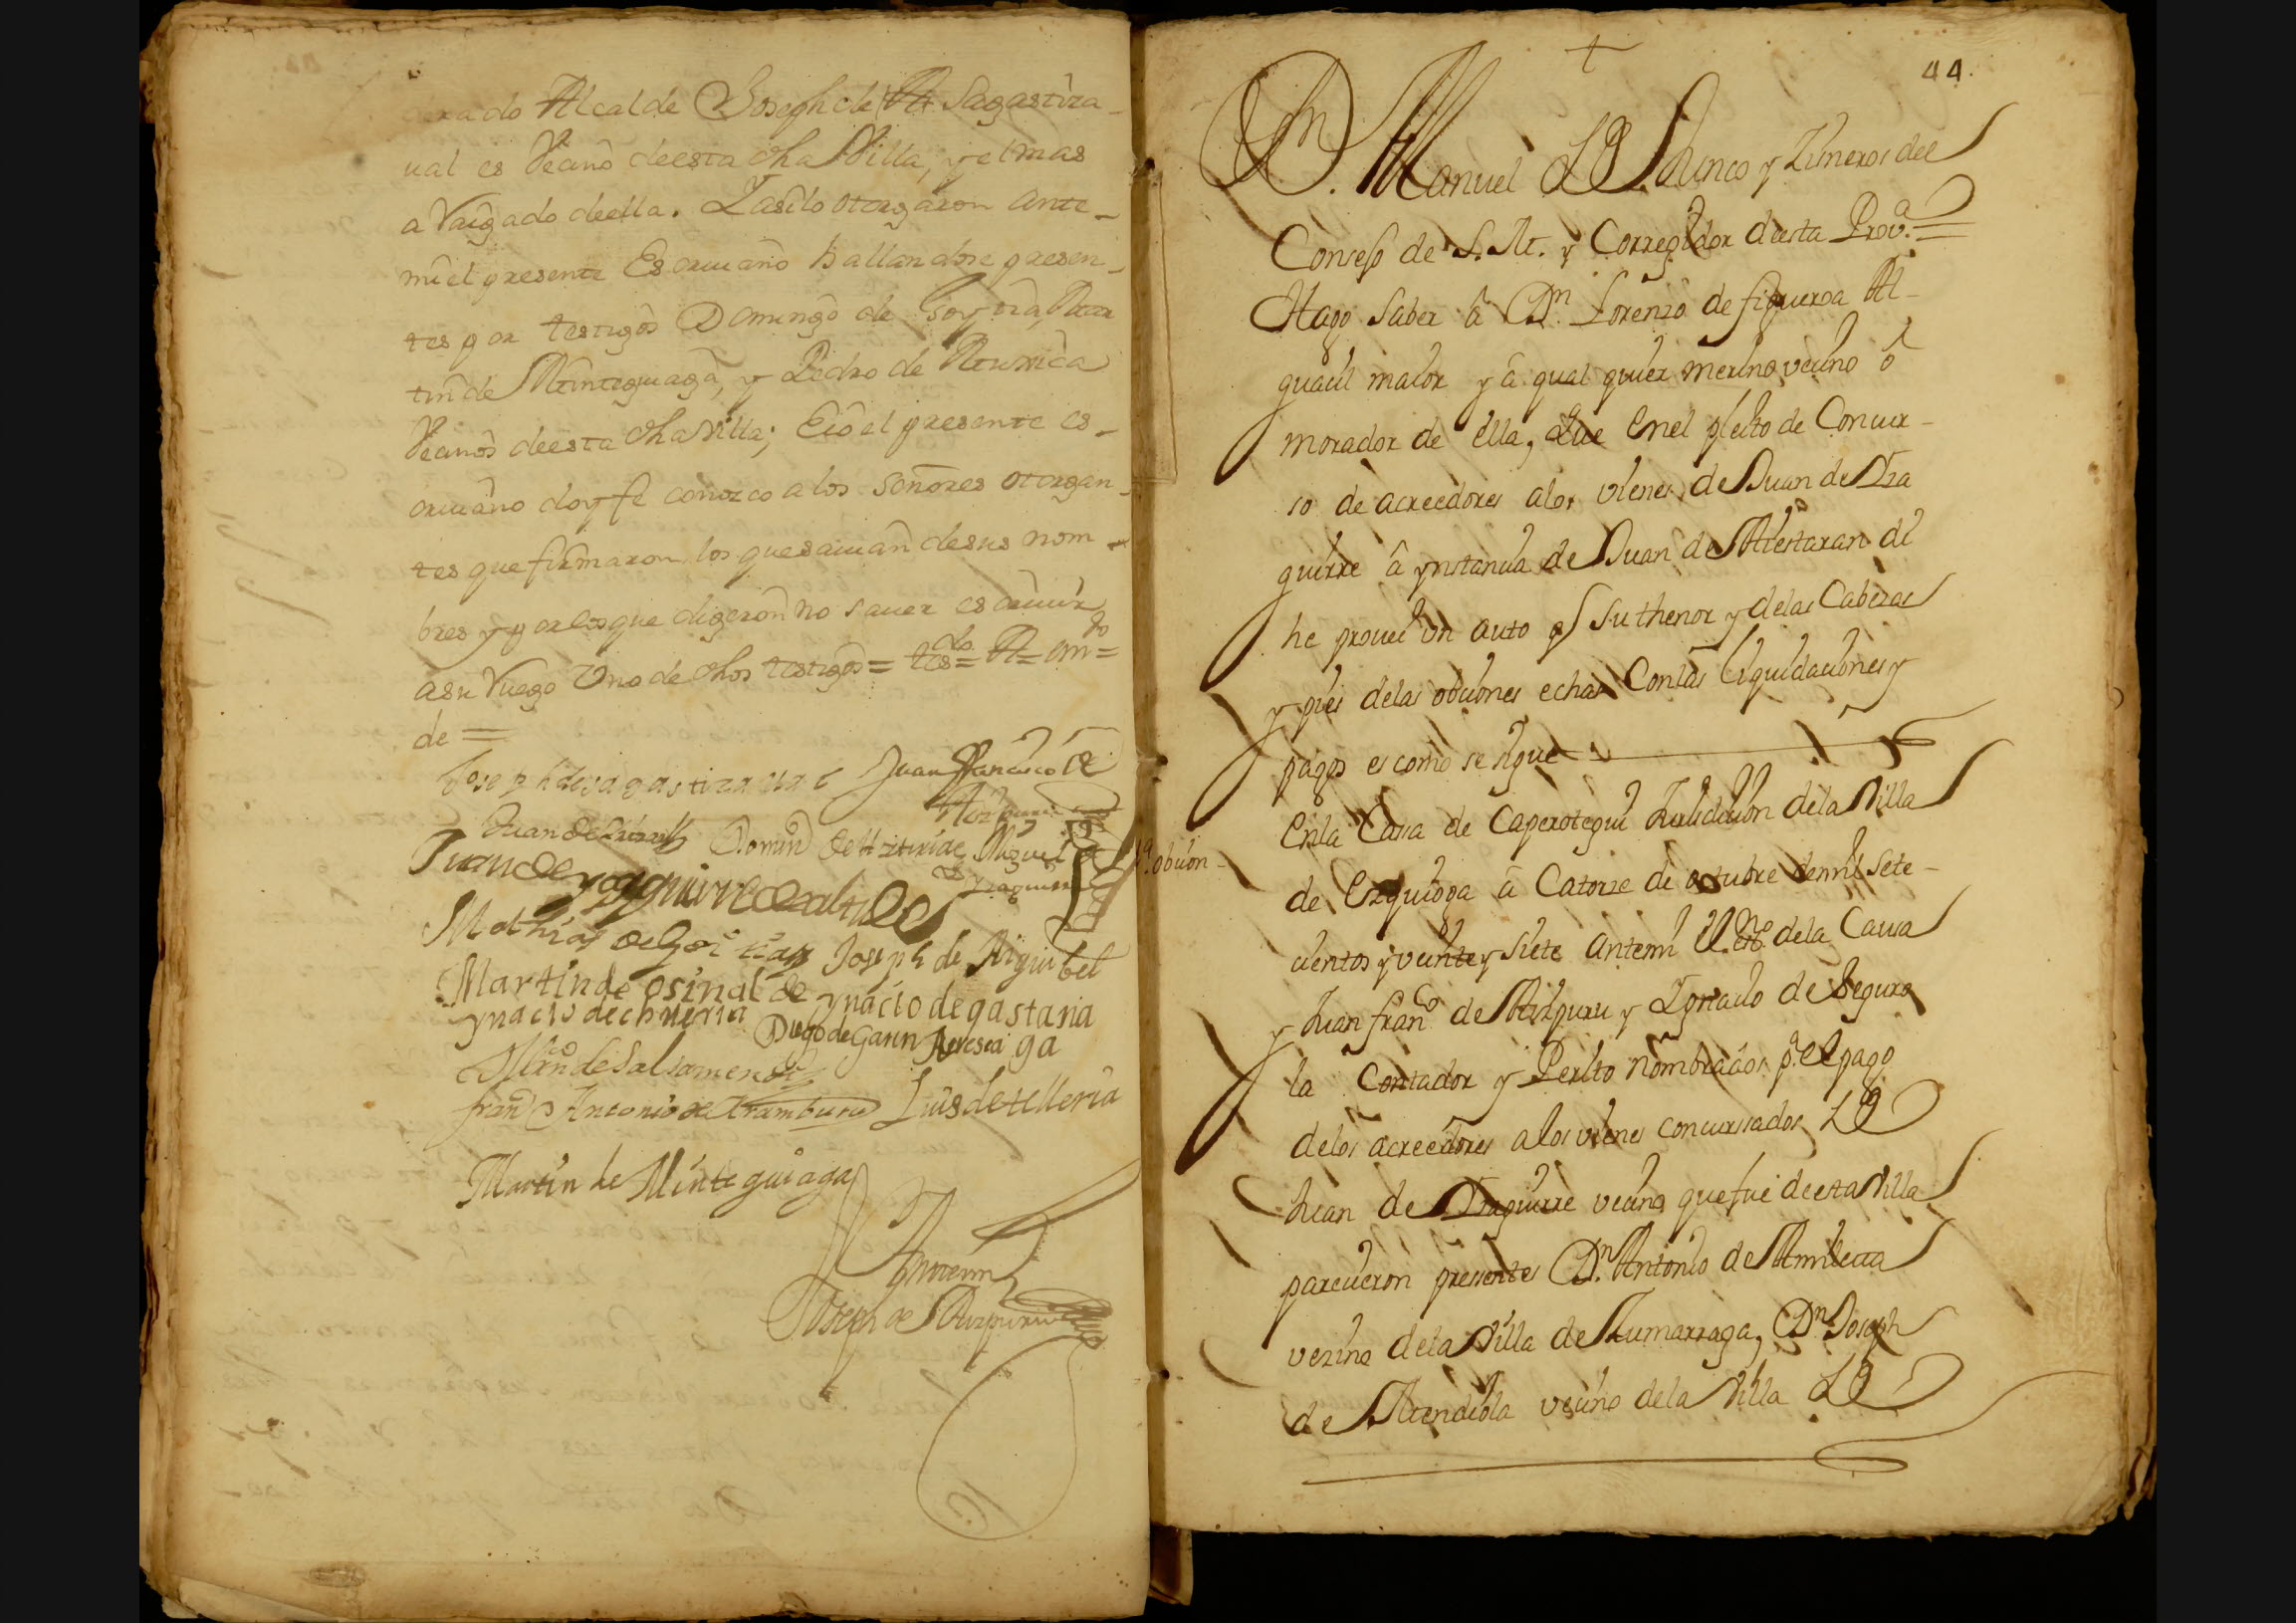 rado Alcalde Joseph de At Sagastiza-
ual es Vecino deesta dha Villa, y el mas
a Vaigado deella. Y asilo otorgaron ante-
mi el presente Escriuano hallandose presen-
tes por testigos Domingo de Goytia, Mar
tin de Minteguiaga, y Pedro de
Vecinos deesta dha Villa; E io el presente es-
criuano doy fe conozco a los señores otorgan-
tes que firmaron los que sauian desus nom-
bres y por los que digeron no sauer escriuir
asu Ruego Uno de dhos testigos=
de=
Joseph de sagastizaual Juan Francisco de
Aizpuru
Juan de Domin de Miguel
Juan de yraguirre
Mathias de Joseph de Aiguibel
Martin de osinalde ynacio de gastana
ynacio de echueria Diego de Garin ga
de Salsamendi
fran Antonio de Aramburu Luis de telleria
Martin de Minteguiaga
Antemi
Joseph de Aizpuru
44.
Dn. Manuel Junco y Zisneros del
Consejo de S. M. y Corregidor desta Prova.
Hago saber â Dn. Lorenzo de figueroa Al-
guacil maior y â qual quier merino vecino ô
morador de ella, Que enel pleito de Concur-
so de acreedores alos vienes de Juan de Yza
guirre â ynstancia de Juan de Alestaran di
he proueí vn auto qe su thenor y delas Cabezas
y pies delas obciones echas Conlas liquidaciones y
pagos es como se sigue
1a. obcion-
Enla Casa de Caperotegui Jurisdicion dela Villa
de Ezquioga â Catorze de octubre demil sete-
cientos y veinte y siete antemi el esno. dela Causa
y Juan franco de Aizpuru y Ignacio de Segura
la Contador y Perito nombrados pa. el pago
delos acreedores a los vienes concurssados
Juan de Yzaguirre vecino que fue de esta Villa
parecieron pressentes Dn. Antonio de Amilleta
vezino dela Villa de Zumarraga, Dn. Joseph
de Atendiola vecino dela Villa